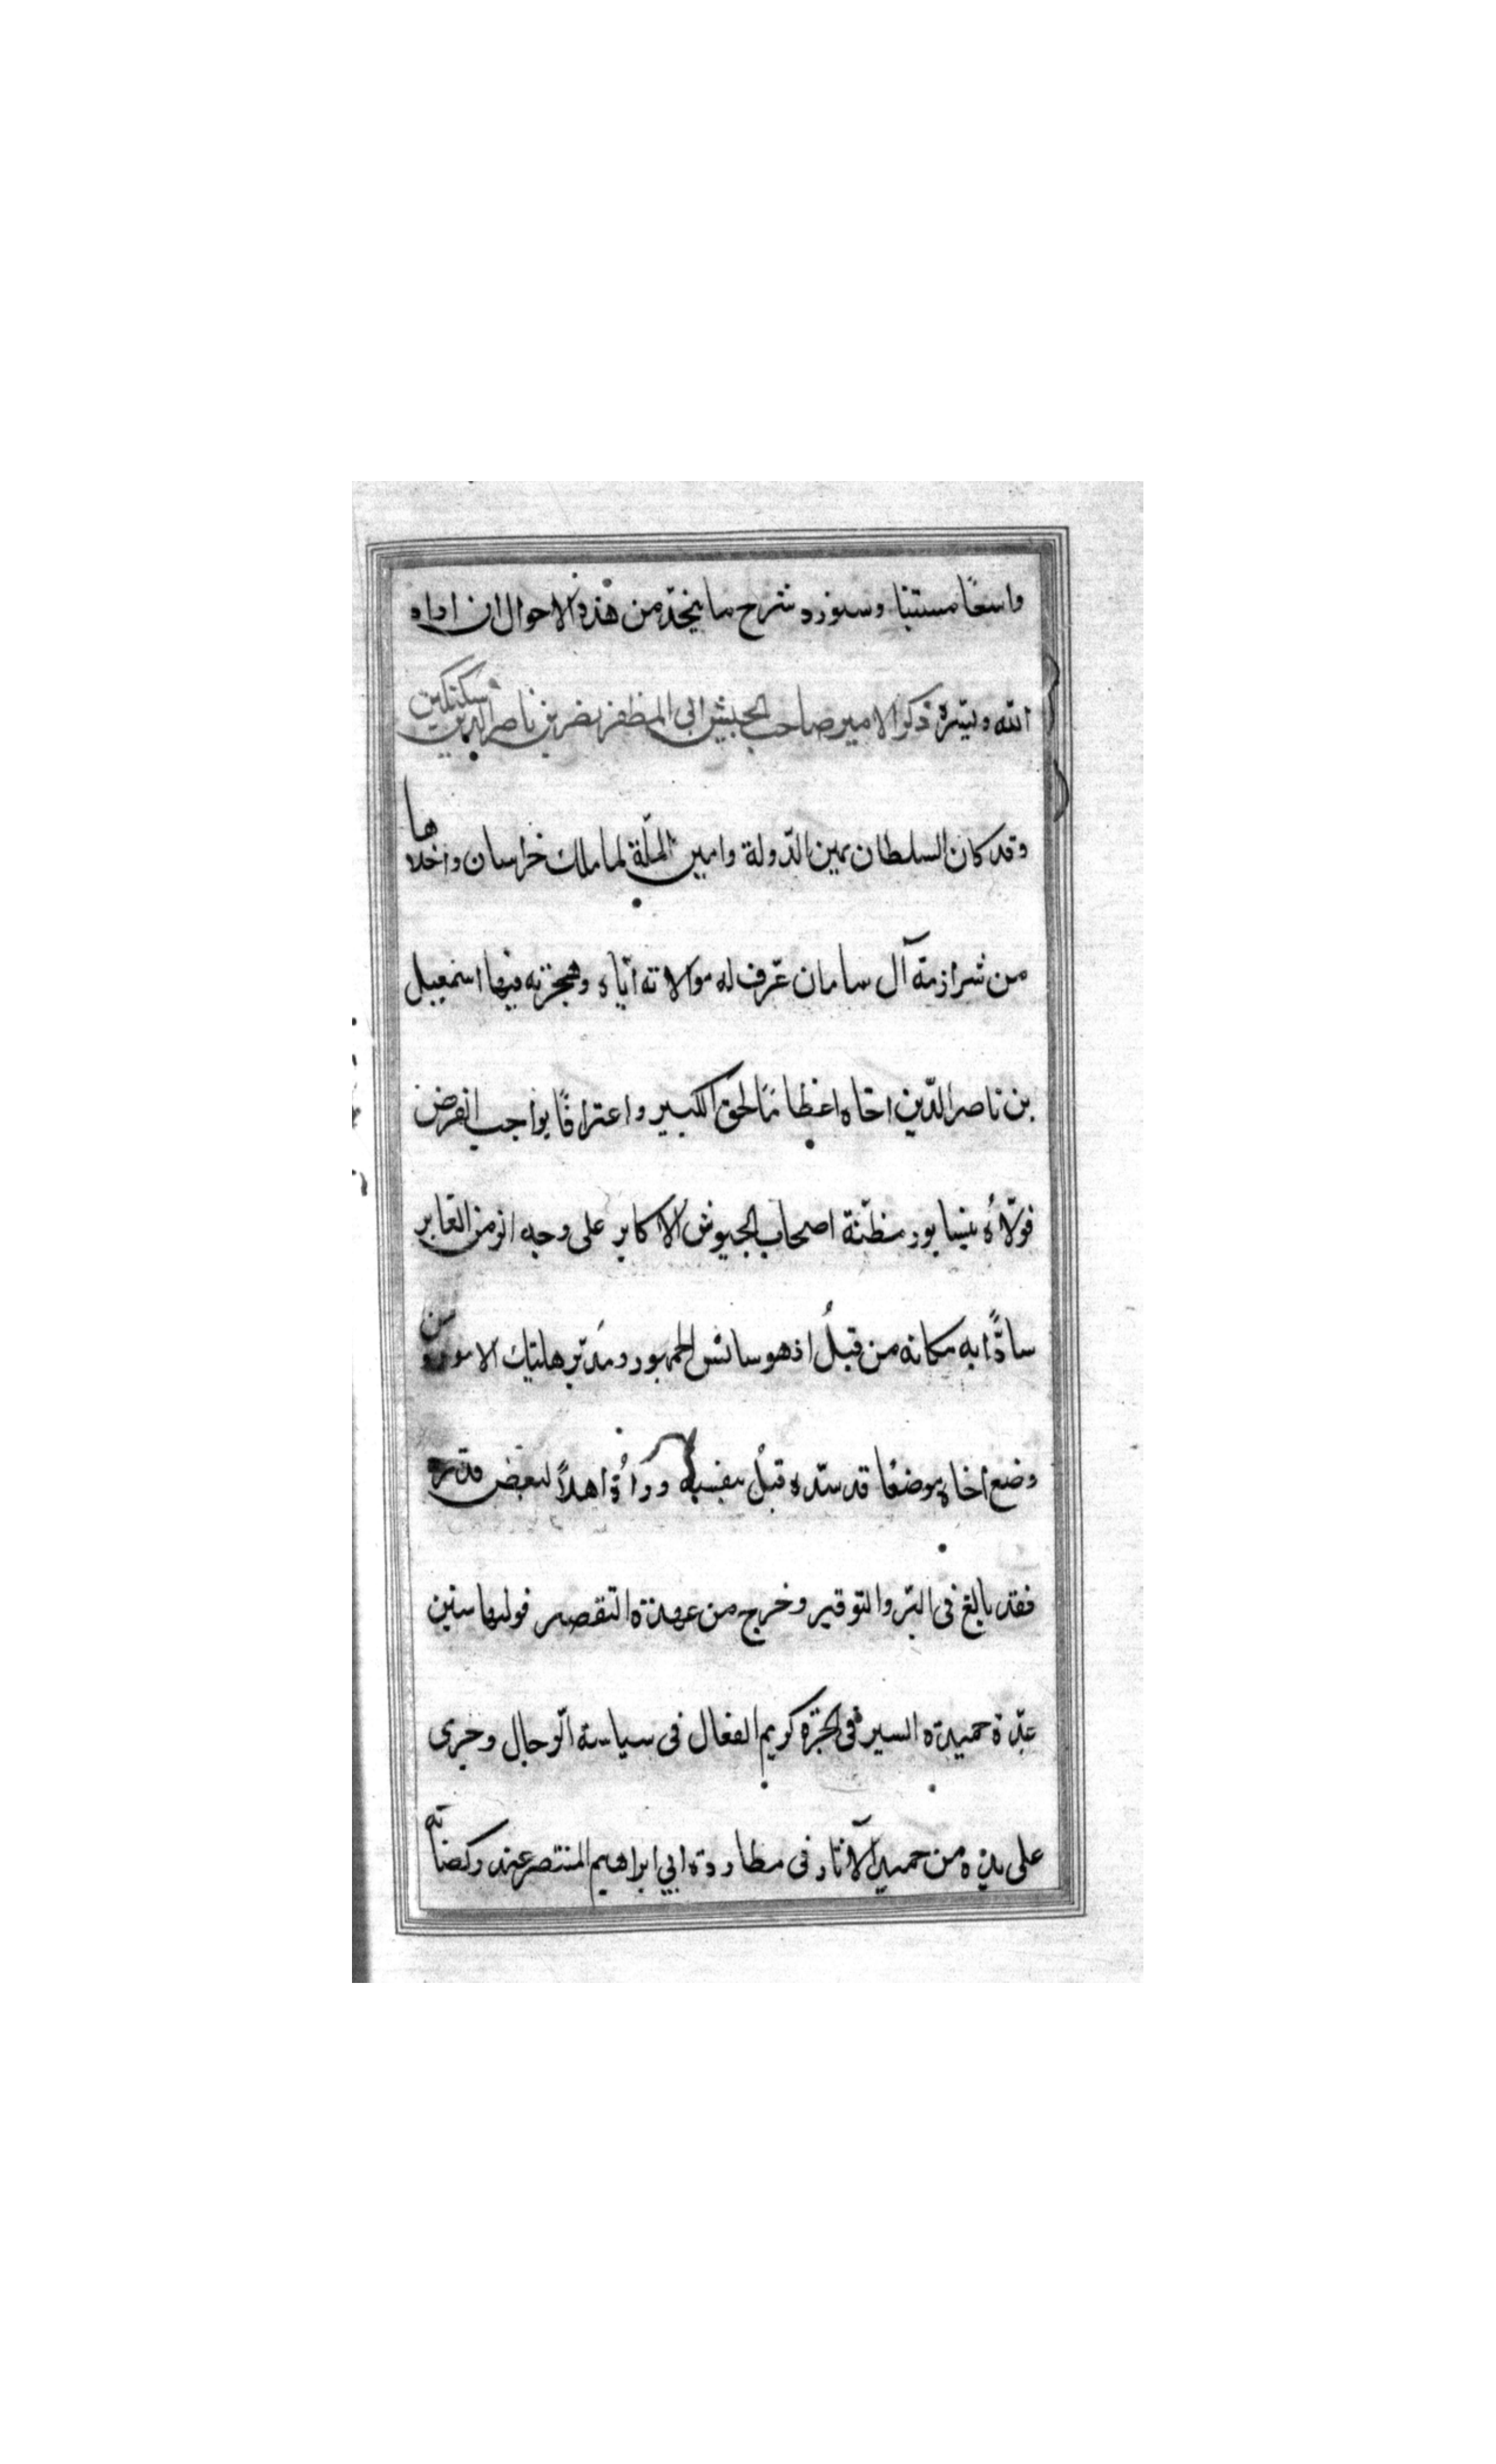 واسعًا مستتبا وسنورد شرح ما يتجدّد من هذه الاحوال ان اراد
الله وبيّسره ذكر الامير صاحب الجيش ابى المظفر نصر بن ناصر الدين سبكتكين
وقد كان السلطان يمين الدّولة وامين الملّة لما ملك خراسان واخلاها
من شرازمة آل سامان عرف له موالاته ايّاه وهجرته فيها اسمعيل
بن ناصر الدّين اخاه اعظامًا لحق الكبير واعترافًا بواجب الفرض
فولّاهُ نيسابور مظنّة اصحاب الجيوش الاكابر على وجه الزمن الغابر
سادًّا به مكانه من قبلُ اذ هو سائس الجمهور ومدبّر هاتيك الامور ومن
وضع اخاه موضعًا قد سدّه قبلُ بنفسه ورآهُ اهلاً لبعض قدره
فقد بالغ فى البّر والتوقير وخرج من عهدة التقصير فوليها سنين
عدّة حميدة السير فى كريم الفعال فى سياسة الرجال وجرى
على يده من حميد الآثار فى مطاردة ابي ابراهيم المنتصر عند ركضاته